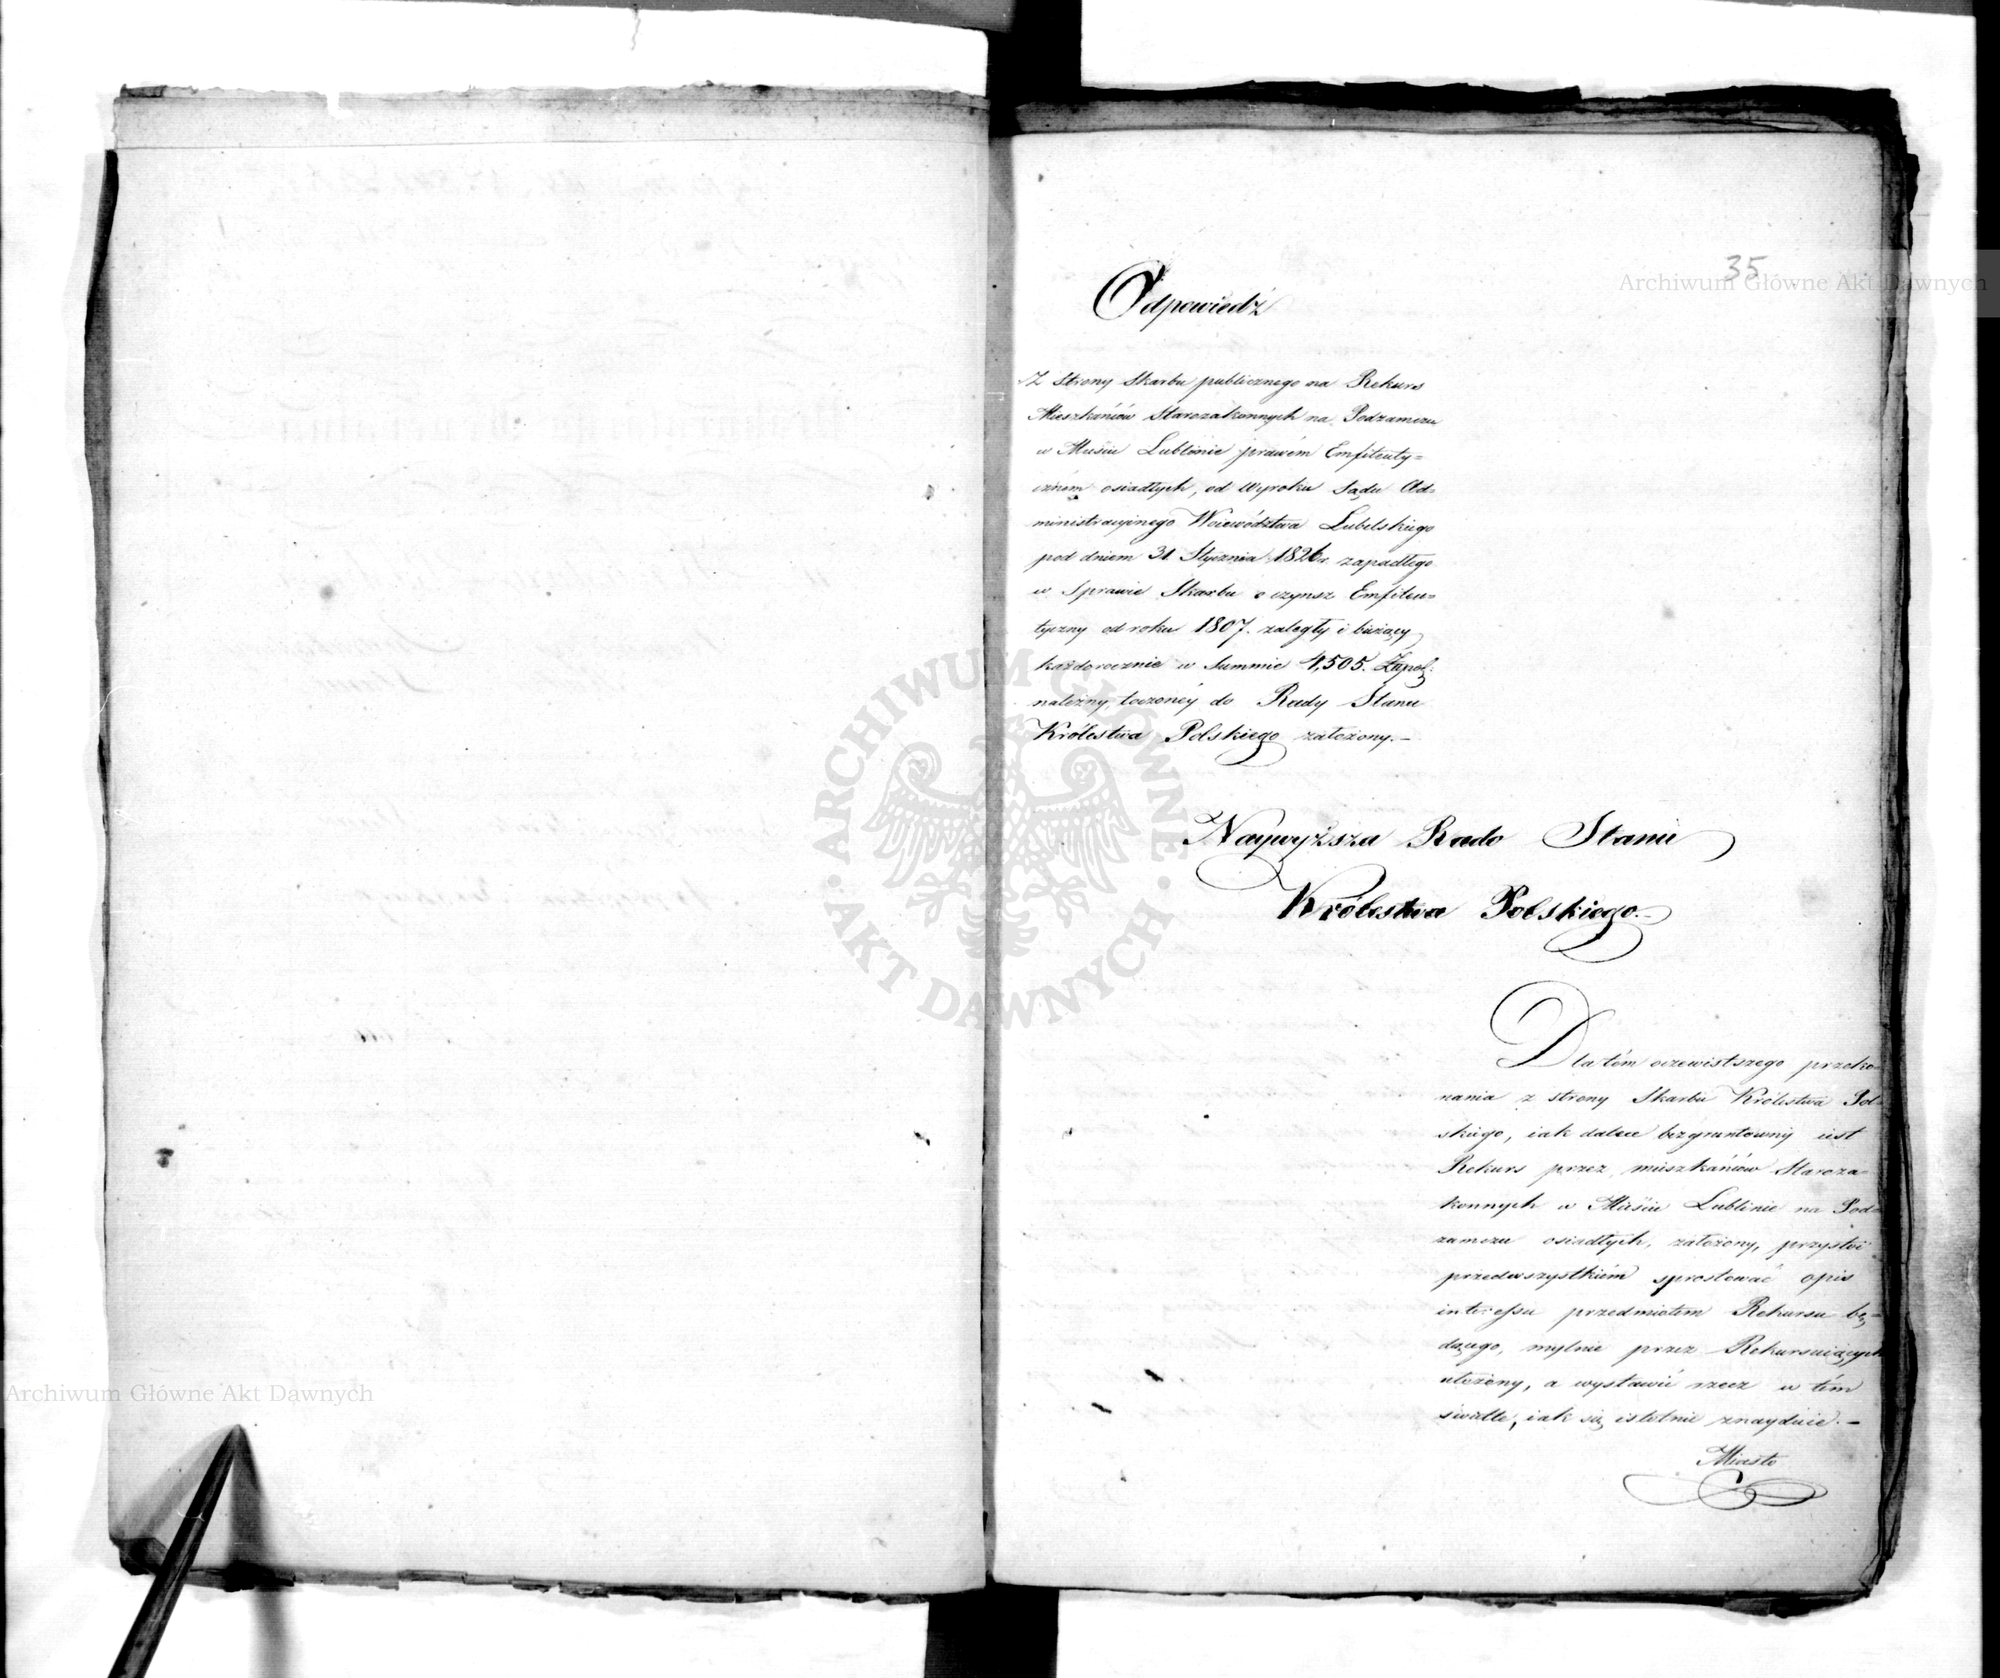 35
Odpowiedź
Z Strony Skarbu publicznego na Rekurs
Mieszkańców Starozakonnych na Podzamczu
w Mieście Lublinie prawem Emfiteuty=
cznem osiadłych, od Wyroku Sądu Ad=
ministracyinego Woiewództwa Lubelskiego
pod dniem 31 Stycznia 1826 r. zapadłego
w Sprawie Skarbu o czynsz Emfiteu=
tyczny od roku 1807. zaległy i bieżący
każdorocznie w Summie 4,505. Złpol:
należny, toczoney do Rady Stanu
Królestwa Polskiego założony.—
Naywyższa Rado Stanu
Królestwa Polskiego.—
Dla tém oczewistszego przeko=
nania z strony Skarbu Królestwa Pol=
skiego, iak dalece bezgruntowny iest
Rekurs przez mieszkańców Staroza=
konnych w Mieście Lublinie na Pod=
zamczu osiadłych, założony, przystoi
przedewszystkiém sprostować opis
interessu przedmiotem Rekursu bę=
dącego, mylnie przez Rekursuiących
ułożony, a wystawić rzecz w tém
świetle, iak się istotnie znayduie.—
Miasto
Archiwum Główne Akt Dawnych
ARCHIWUM GŁÓWNE
AKT DAWNYCH
Archiwum Główne Akt Dawnych